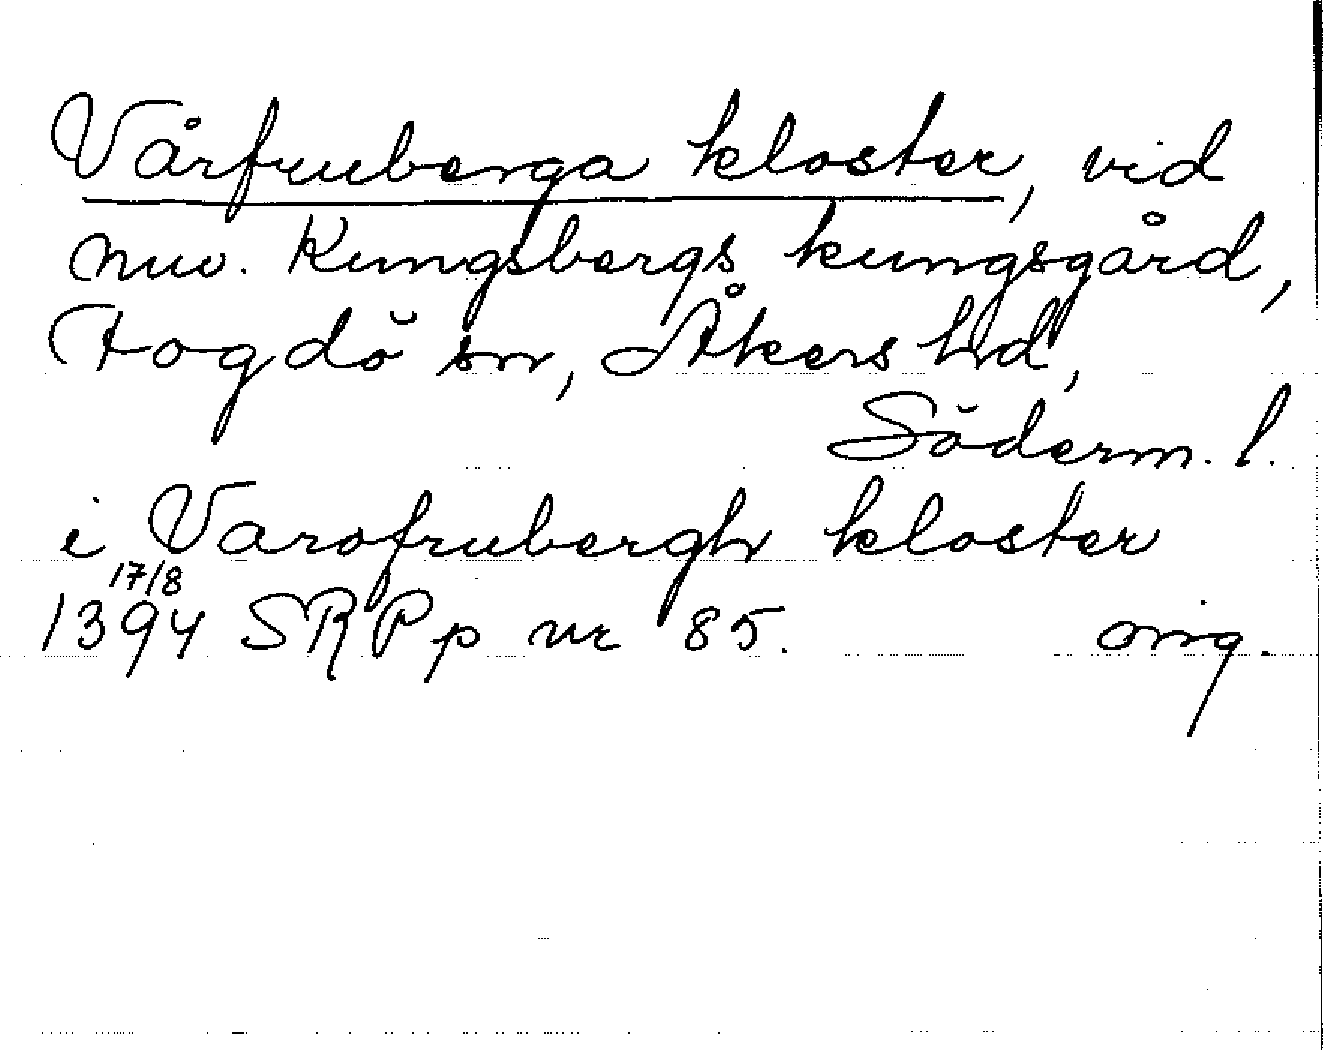 Vårfruberga kloster, vid
nuv. Kungsbergs kungsgård,
Fogdö sn, Åkers hd,
Söderm. l.
i Varofrubergh kloster
17/8
1394 SRPp nr 85. orig.